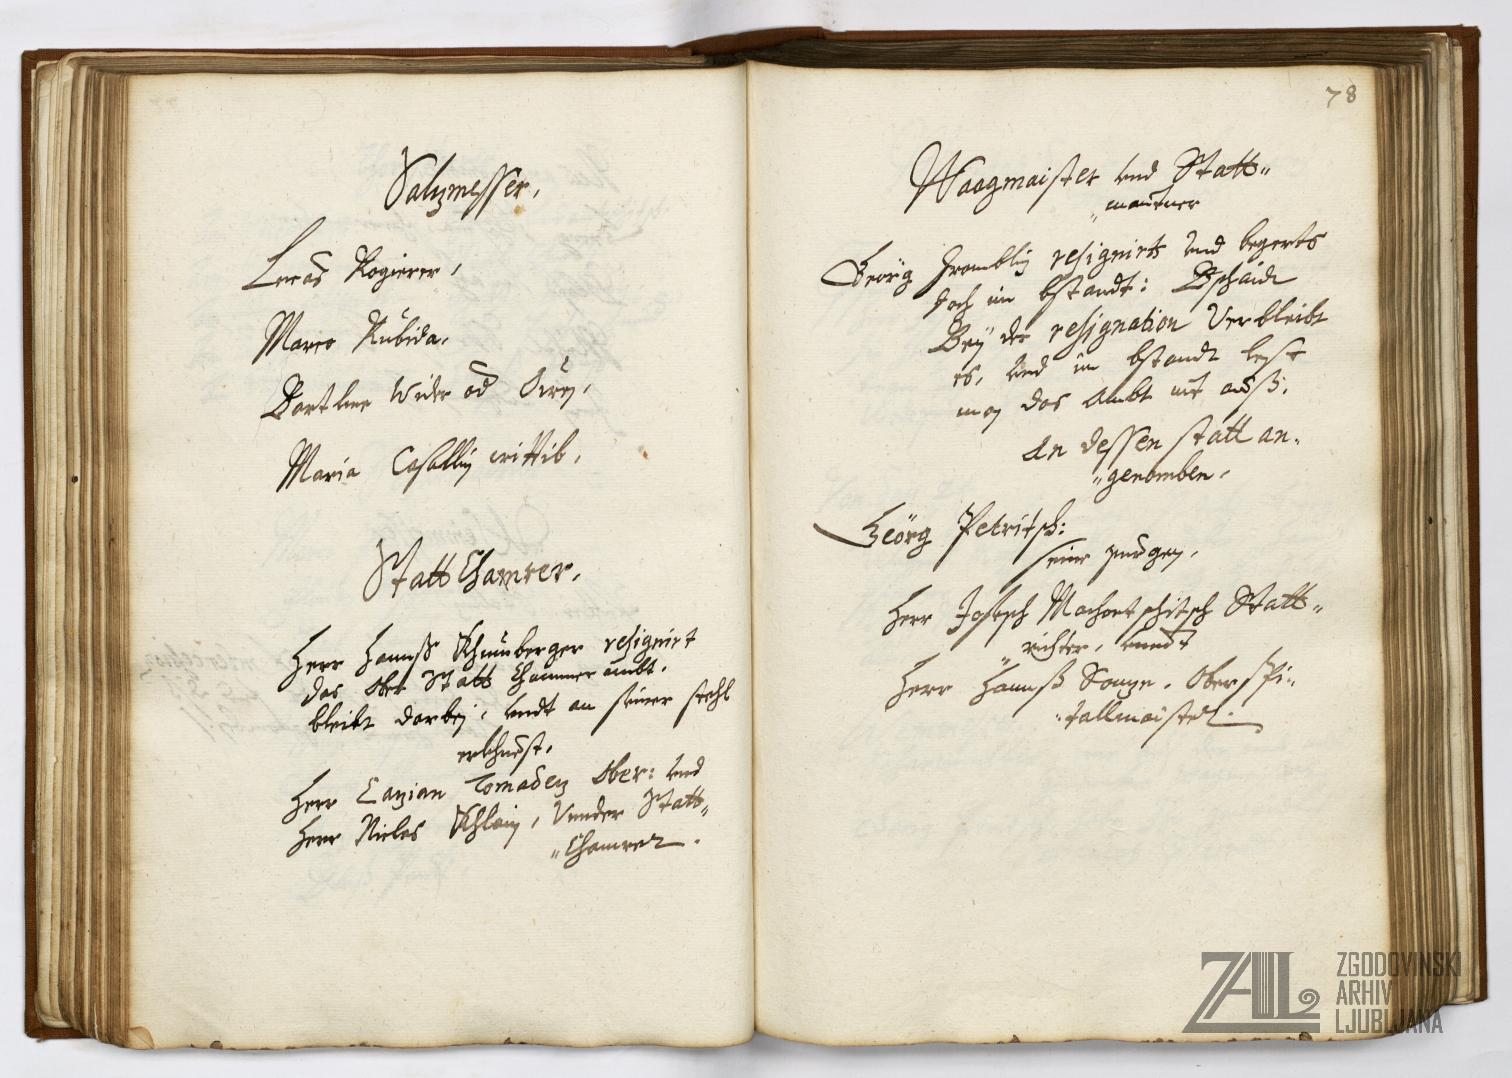 Salzmesser,
Lucas Rogierer,
Marco Kubida,
Bartlme Wider od
Maria wittib,
Statt Chamrer,
Herr Hannß Schnuberger resigniert
das Ober Statt Chammer ambt.
bleibt darbey, undt an seiner stehl
Herr Cazian Tomadez Ober: und
Herr Niclas Schlain, Vnnder Statt„
„Chamrer.
78
Waagmaister und Statt„
„mautner
Geörg resigniert und begerts
doch im bstandt: Bschaidt
Bey der resignation Verbleibt
es, und im bstandt lest
man das Ambt nit auß.
An dessen statt an„
„genomben,
Geörg Petritsch:
seine purgen,
Herr Joseph Statt„
„richter, unndt
Herr Hannß Sonze. Ober spi„
„tallmaister.
ZAL ZGODOVINSKI
ARHIV
LJUBLJANA